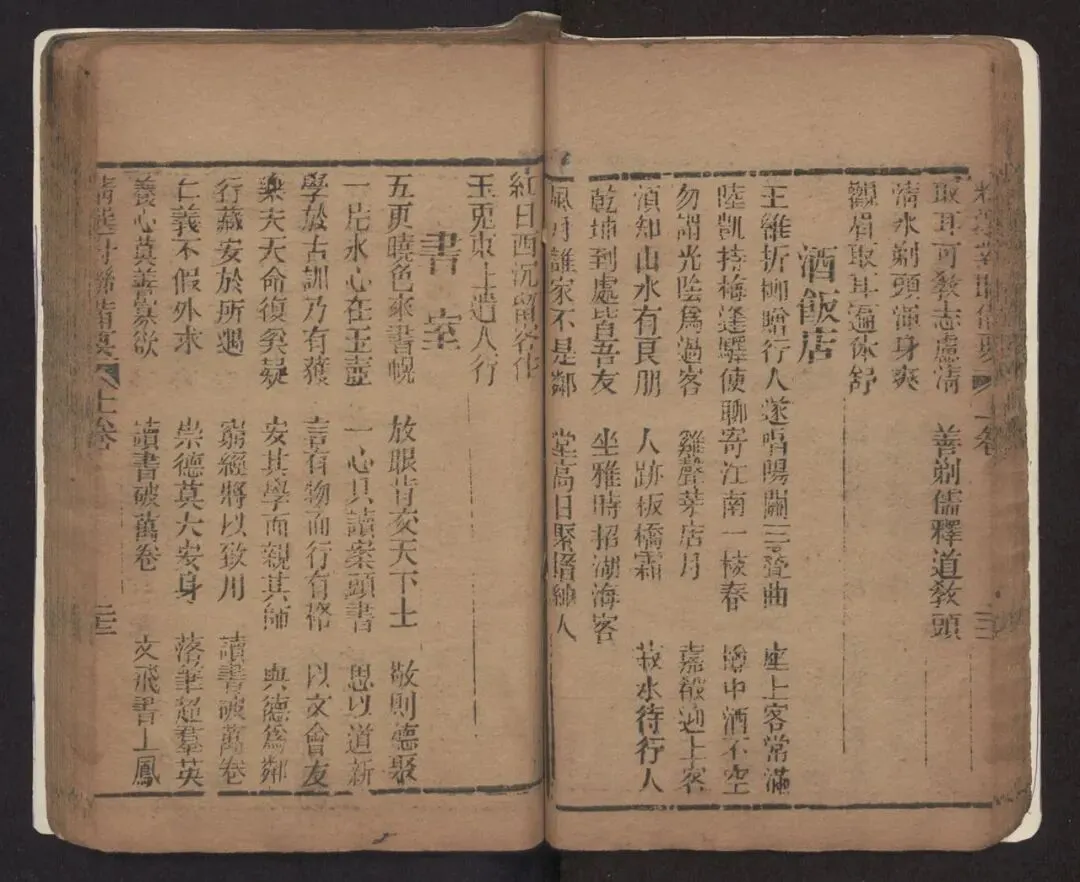 上卷
取耳可教志慮清　善剃儒釋道教頭
清水剃頭渾身爽
觀眉取耳遍体舒
酒飯店
王維折柳贈行人遂唱陽關三叠曲　座上客常滿
陸凱持梅逢驛使聊寄江南一枝春　罇中酒不空
勿謂光陰為過客　雞聲茅店月　嘉殽迎上客
須知山水有良朋　人跡板橋霜　菽水待行人
乾坤到處皆吾友　坐雅時招湖海客
風月誰家不是鄰　堂高日聚搢紳人
紅日西沉留客住
玉兎東上遣人行
書室
五更曉色來書幌　放眼肯交天下士　敬則德聚
一片氷心在玉壺　一心只讀案頭書　思以道新
學於古訓乃有獲　言有物而行有格　以文會友
樂夫天命復奚疑　安其學而親其師　與德為鄰
行藏安於所遇　窮經將以致用　讀書破萬卷
仁義不假外求　崇德莫大安身　落筆超羣英
養心莫善寡欲　讀書破萬卷　文飛書上鳳
精選對聯備要　上卷